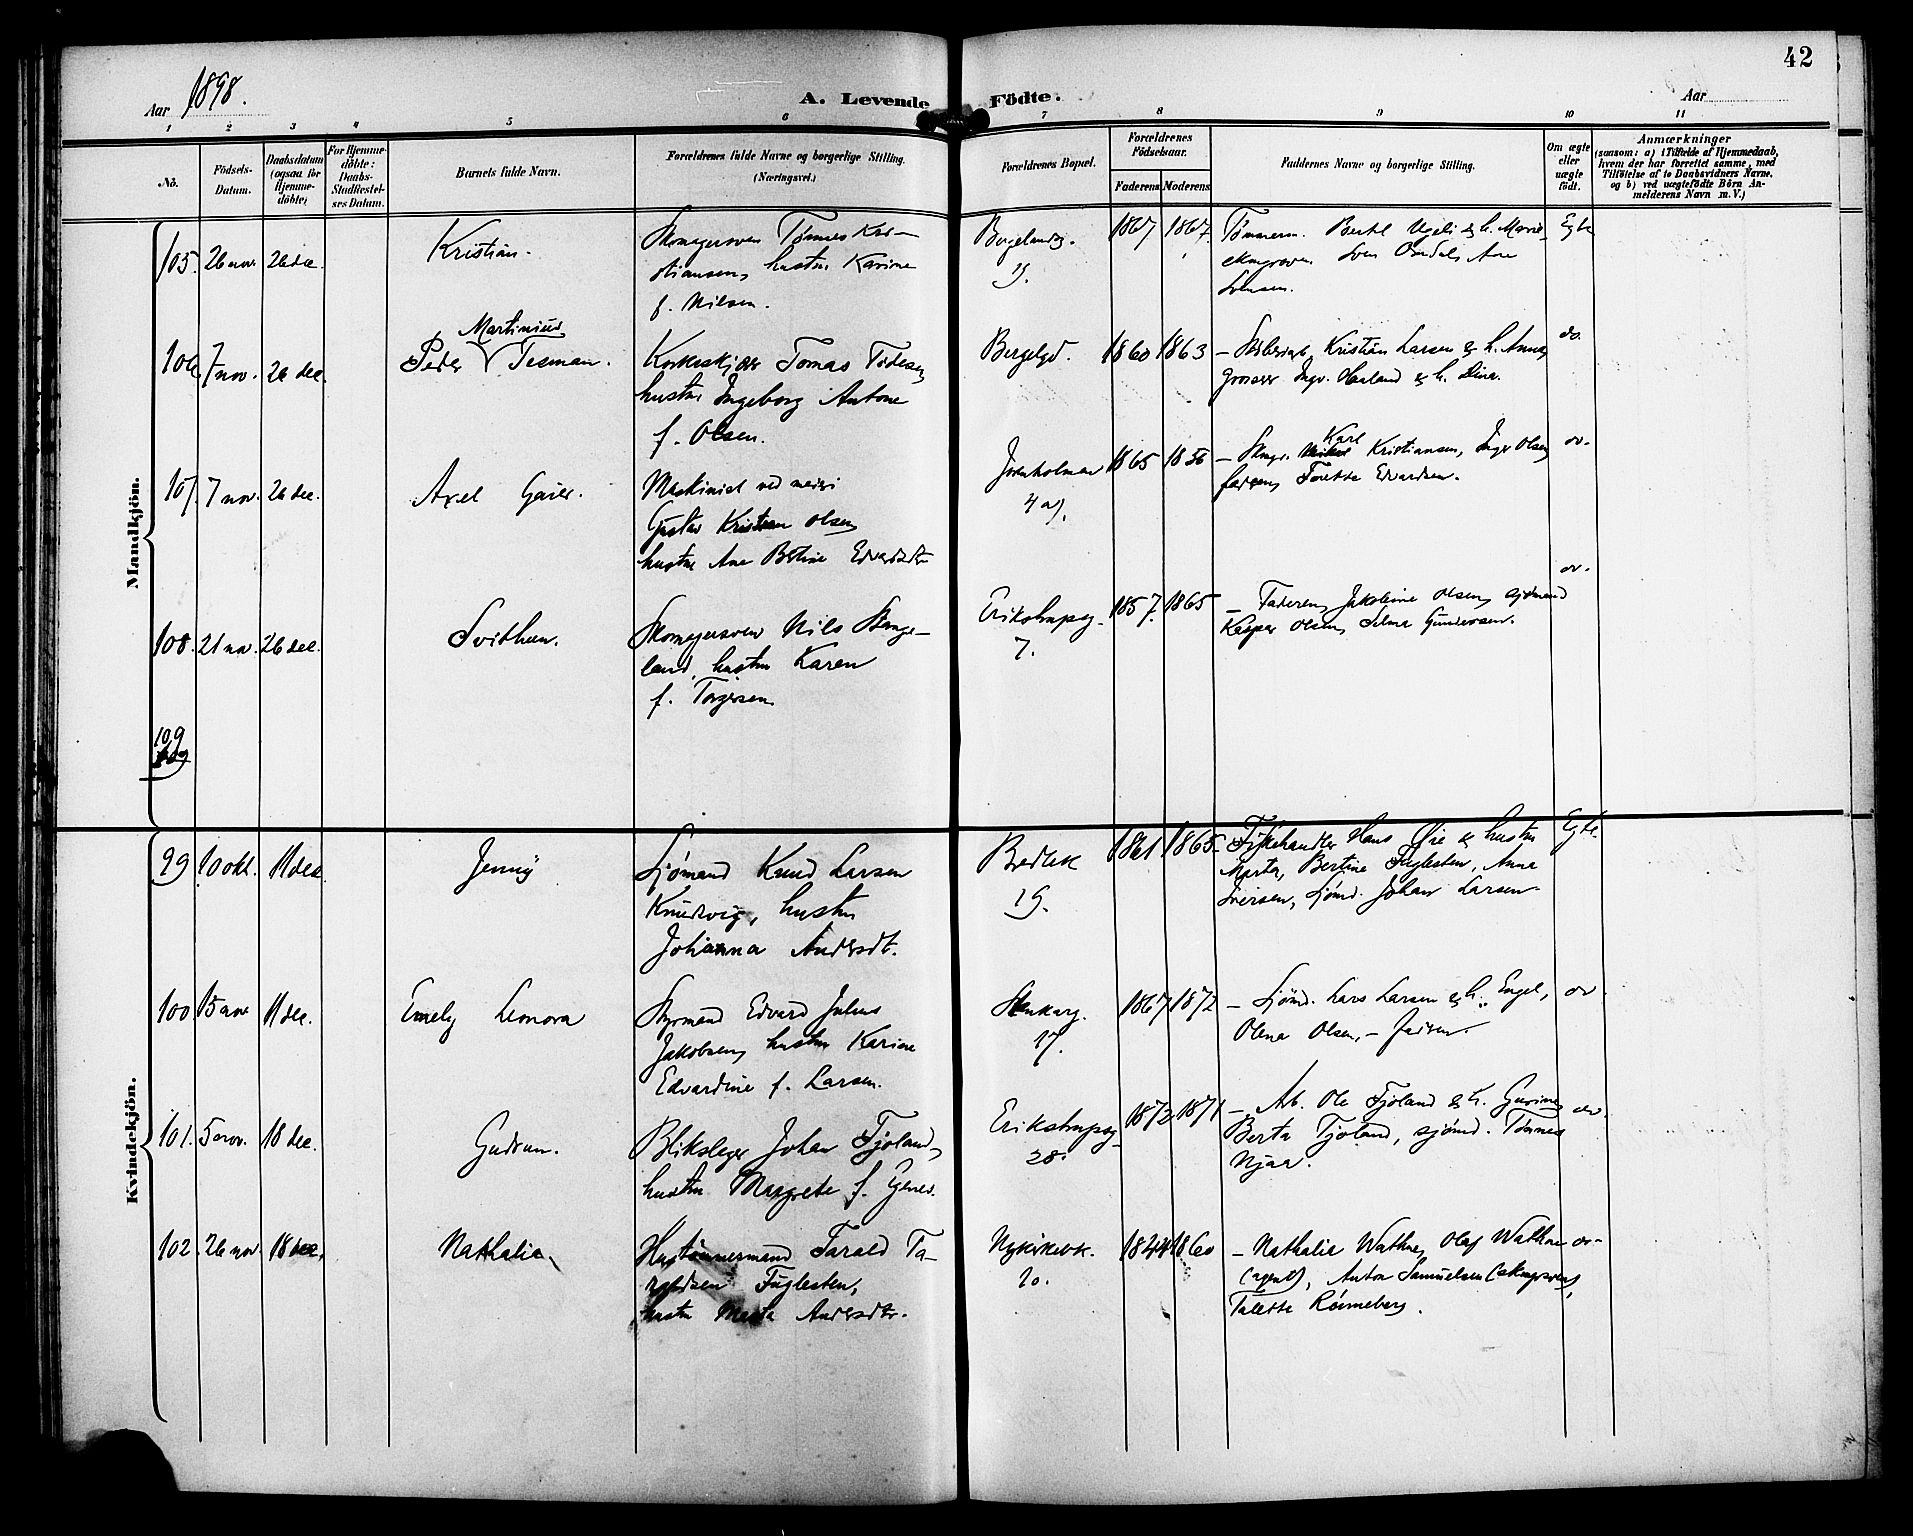 42
Aar 1898.
A. Levende Födte.
Aar
1 2 3 4 5 6 7 8 9 10 11
No.
Födsels-Datum.
Daabsdatum (ogsaa for Hjemme-döbte)
For Hjemme-döbte: Daabs-Stadfæstel-ses Datum.
Barnets fulde Navn.
Forældrenes fulde Navne og borgerlige Stilling.
(Næringsvei.)
Forældrenes Bopæl.
Forældrenes Födselsaar.
Faderens Moderens
Faddernes Navne og borgerlige Stilling.
Om ægte eller uægte födt.
Anmærkninger
(saasom: a) i Tilfælde af Hjemmedaab,
hvem der har forrettet samme, med
Tilföielse af to Daabsvidners Navne,
og b) ved uægtefödte Börn An-
melderens Navn m. V.)
Mandkjön.
105. 26 nov. 26 dec. Kristian.
Skomagersven Tønnes Kri-
stiansen, hustru Karine
f. Nilsen.
Bergelandsg.
19.
1867 1867.
Tømmerm. Bertel Ueli & h. Marie,
Sven Omdal, Ane
Svensen.
Egte
106. 7 nov. 26 dec. Peder Martinius Tesman.
Tomas Todesen,
hustru Ingeborg Antone
f. Olsen.
Bergelgd.
1860 1863
Kristian Larsen & h. Anna,
Grosser Ingv. Haaland & h. Dina.
do.
107. 7 nov. 26 dec. Axel Gaier.
Maskinist ved meieri
Gustav Kristian Olsen,
hustru Ane Bertine Edvardsdtr
Jorenholmen
4 a).
1865 1856
Karl
Kristiansen, Inger Olsen,
faderen, Torette Edvardsen.
do.
108. 21 nov. 26 dec. Svithun.
Skomagersven Nils Stange-
land, hustru Karen
f. Torgersen
Erikstrupsg.
7.
1857. 1865
Faderen, Jakobine Olsen, sjømand
Kasper Olsen, Selma Gundersen.
do.
109
Kvindekjön.
99 10 okt. 11 dec. Jenny
Sjømand Knud Larsen
Knudsvig, hustru
Johanna Andersdt.
Bredbk
19.
1861 1865
Fiskehandler Hans Øie & hustru
Marta, Bertine Fuglesten, Anna
Iversen, Sjømd. Johan Larsen
Egte.
100. 15 nov 11 dec. Emely Leonora
Styrmand Edvard Julius
Jakobsen, hustru Karine
Edvardine f. Larsen.
Stenkarg.
17.
1867 1872
Sjømd. Lars Larsen & h. Engel,
Olena Olsen, – faderen.
do.
101. 5 nov. 18 dec. Gudrun.
Blikslager Johan Tjoland,
hustru Margrete f.
Erikstrupsg.
28.
1872 1871
Arb. Ole Tjoland & h. Gurine,
Berta Tjoland, sjømd. Tønnes
Njaa.
do.
102. 26 nov. 18 dec. Nathalia
Hustømmermand Tarald Ta-
raldsen Fuglesten,
hustru Marta Andersdtr.
Nykirkebk.
20.
1844 1860
Nathalia Wathne, Olaf Wathne
(agent), Anton Samuelsen (skmgrsven),
Talette Rönneberg.
do.